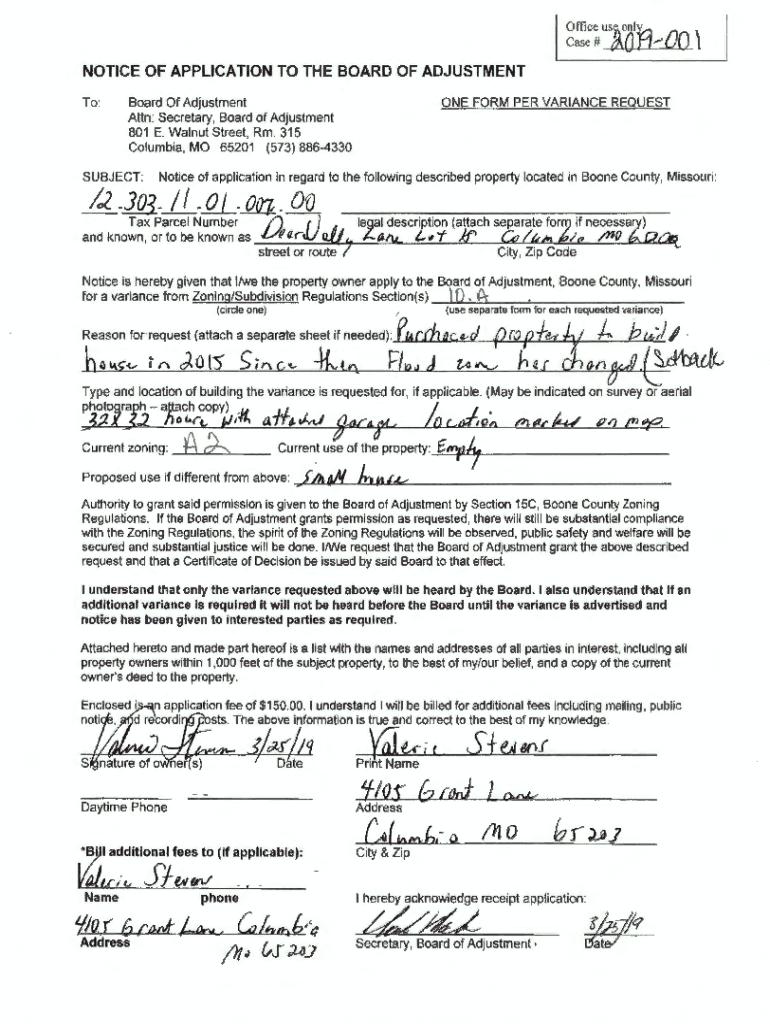 Office use only
Case # 2019-001
NOTICE OF APPLICATION TO THE BOARD OF ADJUSTMENT
To: Board Of Adjustment ONE FORM PER VARIANCE REQUEST
Attn: Secretary, Board of Adjustment
801 E. Walnut Street, Rm. 315
Columbia, MO 65201 (573) 886-4330
SUBJECT: Notice of application in regard to the following described property located in Boone County, Missouri:
12-303-11-01-007.00
Tax Parcel Number legal description (attach separate form if necessary)
and known, or to be known as Deer Vally Lane Lot Columbia MO
street or route City, Zip Code
Notice is hereby given that I/we the property owner apply to the Board of Adjustment, Boone County, Missouri
for a variance from Zoning/Subdivision Regulations Section(s) 10.A
(circle one) (use separate form for each requested variance)
Reason for request (attach a separate sheet if needed): Purchaced propterty to build
house in 2015 Since then Flood zone has changed (Setback
Type and location of building the variance is requested for, if applicable. (May be indicated on survey or aerial
photograph – attach copy)
32x32 house with attached garage location marked on map
Current zoning: A2 Current use of the property: Empty
Proposed use if different from above: small house
Authority to grant said permission is given to the Board of Adjustment by Section 15C, Boone County Zoning
Regulations. If the Board of Adjustment grants permission as requested, there will still be substantial compliance
with the Zoning Regulations, the spirit of the Zoning Regulations will be observed, public safety and welfare will be
secured and substantial justice will be done. I/We request that the Board of Adjustment grant the above described
request and that a Certificate of Decision be issued by said Board to that effect.
I understand that only the variance requested above will be heard by the Board. I also understand that if an
additional variance is required it will not be heard before the Board until the variance is advertised and
notice has been given to interested parties as required.
Attached hereto and made part hereof is a list with the names and addresses of all parties in interest, including all
property owners within 1,000 feet of the subject property, to the best of my/our belief, and a copy of the current
owner's deed to the property.
Enclosed is an application fee of $150.00. I understand I will be billed for additional fees including mailing, public
notice, and recording costs. The above information is true and correct to the best of my knowledge.
Valerie Stevens 3/25/19 Valerie Stevens
Signature of owner(s) Date Print Name
4105 Grant Lane
Daytime Phone Address
Columbia MO 65203
*Bill additional fees to (if applicable): City & Zip
Valerie Stevens
Name phone I hereby acknowledge receipt application:
4105 Grant Lane Columbia 3/25/19
Address Mo 65203 Secretary, Board of Adjustment Date